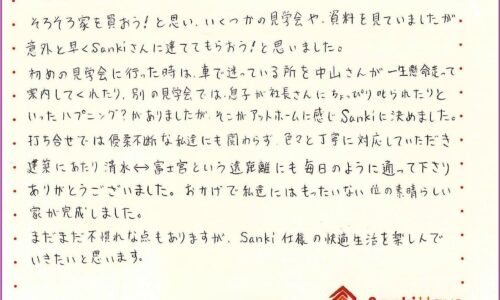 そろそろ家を買おう!と思い、いくつかの見学会や、資料を見ていましたが
意外と早くSankiさんに建ててもらおう!と思いました。
初めの見学会に行った時は、車で迷っている所を中山さんが一生懸命走って
案内してくれたり、別の見学会では、息子が社長さんにちょっぴり叱られたりと
いったハプニング?がありましたが、そこがアットホームに感じSankiに決めました。
打ち合せでは優柔不断な私達にも関わらず、色々と丁寧に対応していただき
建築にあたり清水↔富士宮という遠距離にも毎日のように通って下さり
ありがとうございました。おかげで私達にはもったいない位の素晴らしい
家が完成しました。
まだまだ不慣れな点もありますが、Sanki仕様の快適生活を楽しんで
いきたいと思います。